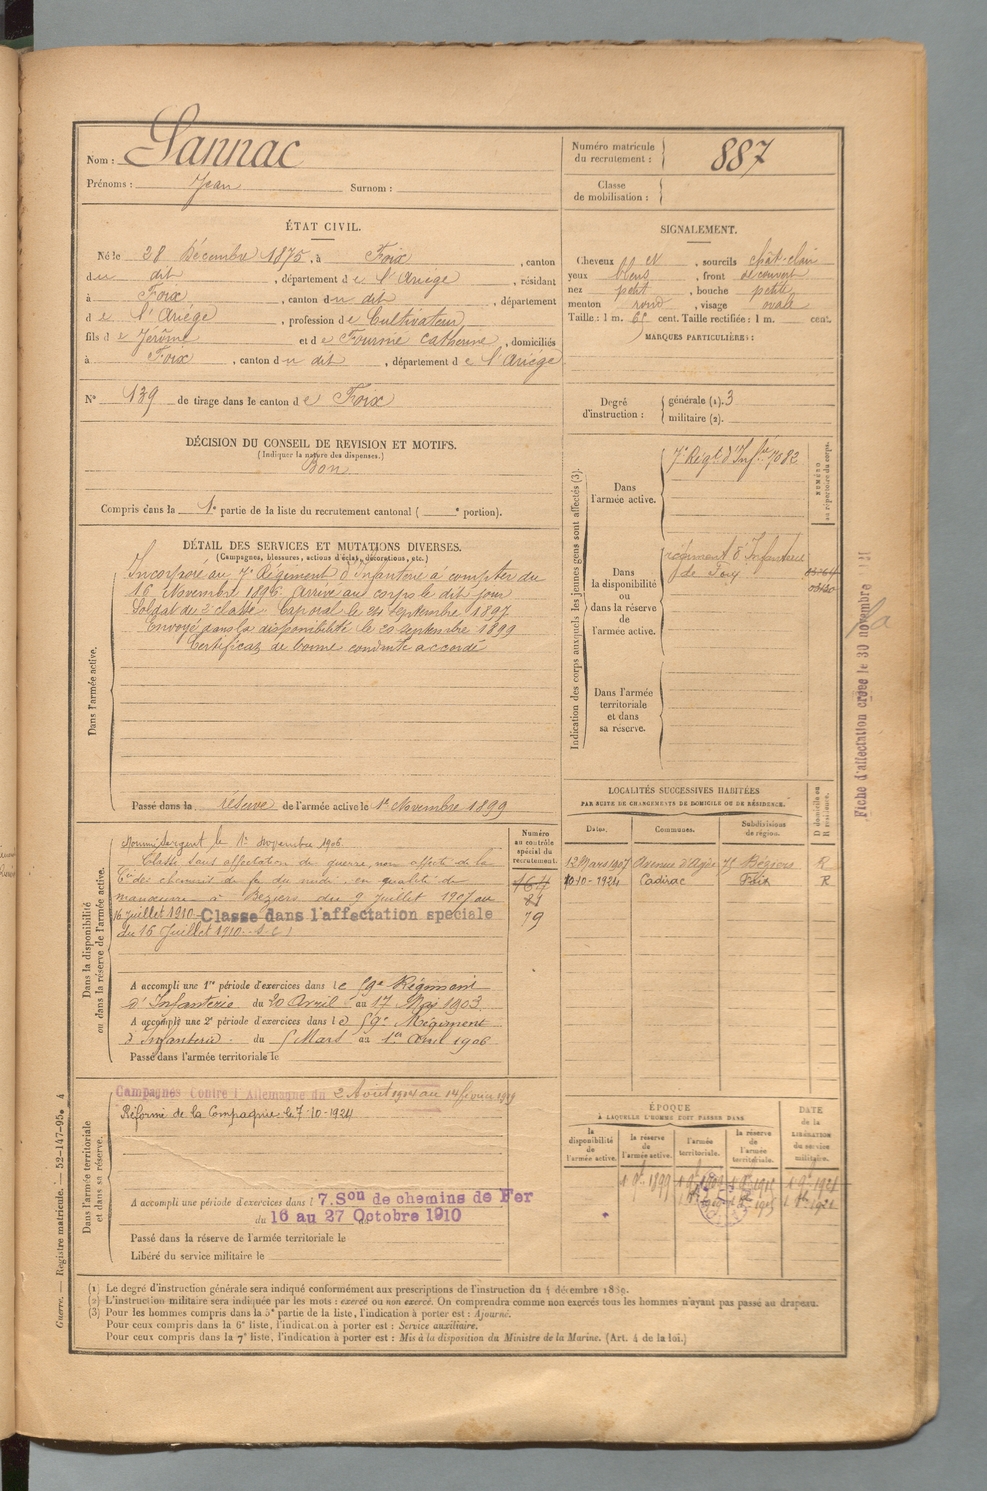 Nom : Lannac
Prénoms : Jean Surnom :
Numéro matricule du recrutement : 887
Classe de mobilisation :
ÉTAT CIVIL.
Né le 28 Décembre 1875, à Foix, canton
du dit, département de l'Ariège, résidant
à Foix, canton du dit, département
de l'Ariège, profession de Cultivateur
fils de Jérôme et de Fourme Catherine, domiciliés
à Foix, canton du dit, département de l'Ariège
N° 139 de tirage dans le canton de Foix
DÉCISION DU CONSEIL DE REVISION ET MOTIFS.
(Indiquer la nature des dispenses.)
Bon
Compris dans la 1e partie de la liste du recrutement cantonal ( e portion).
SIGNALEMENT.
Cheveux et N, sourcils chât-clair
yeux bleus, front découvert
nez petit, bouche petite
menton rond, visage ovale
Taille : 1 m. 65 cent. Taille rectifiée : 1 m. cent.
MARQUES PARTICULIÈRES :
Degré d'instruction : générale (1). 3
militaire (2).
DÉTAIL DES SERVICES ET MUTATIONS DIVERSES.
(Campagnes, blessures, actions d'éclat, décorations, etc.)
Dans l'armée active.
Incorporé au 7e Régiment d'Infanterie à compter du
16 Novembre 1896. Arrivé au corps le dit jour
Soldat de 2e classe. Caporal le 24 septembre 1897
Envoyé dans la disponibilité le 20 septembre 1899
Certificat de bonne conduite accordé
Passé dans la réserve de l'armée active le 1er Novembre 1899
Indication des corps auxquels les jeunes gens sont affectés (3).
Dans l'armée active.
7e Régt d'Infie 7082
NUMÉRO au répertoire du corps.
Dans la disponibilité ou dans la réserve de l'armée active.
régiment d'Infanterie
de Foix
Dans l'armée territoriale et dans sa réserve.
Fiche d'affectation créée le 30 novembre
LOCALITÉS SUCCESSIVES HABITÉES
PAR SUITE DE CHANGEMENTS DE DOMICILE OU DE RÉSIDENCE.
Dates. Communes. Subdivisions de région. D domicile ou R résidence.
12 Mars 1907 Avenue d'Agde 75 Béziers R
10-10-1924 Cadirac Foix R
Dans la disponibilité ou dans la réserve de l'armée active.
Numéro au contrôle spécial du recrutement.
164
81
79
Nommé Sergent le 1er Novembre 1906
Classé sans affectation de guerre, non affecté de la
Cie des chemins de fer du midi, en qualité de
manœuvre à Béziers du 9 Juillet 1907 au
16 juillet 1910 Classé dans l'affectation spéciale
du 16 Juillet 1910.
A accompli une 1re période d'exercices dans le 59e Régiment
d'Infanterie du 20 Avril au 17 Mai 1903.
A accompli une 2e période d'exercices dans le 59e Régiment
d'Infanterie du 5 Mars au 1er Avril 1906
Passé dans l'armée territoriale le
Dans l'armée territoriale et dans sa réserve.
Campagnes Contre l'Allemagne du 2 Août 1914 au 14 février 1919
Réformé de la Compagnie le 7-10-1924
A accompli une période d'exercices dans l 7. Son de chemins de Fer
du 16 au 27 Octobre 1910
Passé dans la réserve de l'armée territoriale le
Libéré du service militaire le
ÉPOQUE
À LAQUELLE L'HOMME DOIT PASSER DANS
la disponibilité de l'armée active. la réserve de l'armée active. l'armée territoriale. la réserve de l'armée territoriale.
DATE de la LIBÉRATION du service militaire.
1 9bre 1899
(1) Le degré d'instruction générale sera indiqué conformément aux prescriptions de l'instruction du 4 décembre 1889.
(2) L'instruction militaire sera indiquée par les mots : exercé ou non exercé. On comprendra comme non exercés tous les hommes n'ayant pas passé au drapeau.
(3) Pour les hommes compris dans la 5e partie de la liste, l'indication à porter est : Ajourné.
Pour ceux compris dans la 6e liste, l'indication à porter est : Service auxiliaire.
Pour ceux compris dans la 7e liste, l'indication à porter est : Mis à la disposition du Ministre de la Marine. (Art. 4 de la loi.)
Guerre. — Registre matricule. — 52-147-95. 4